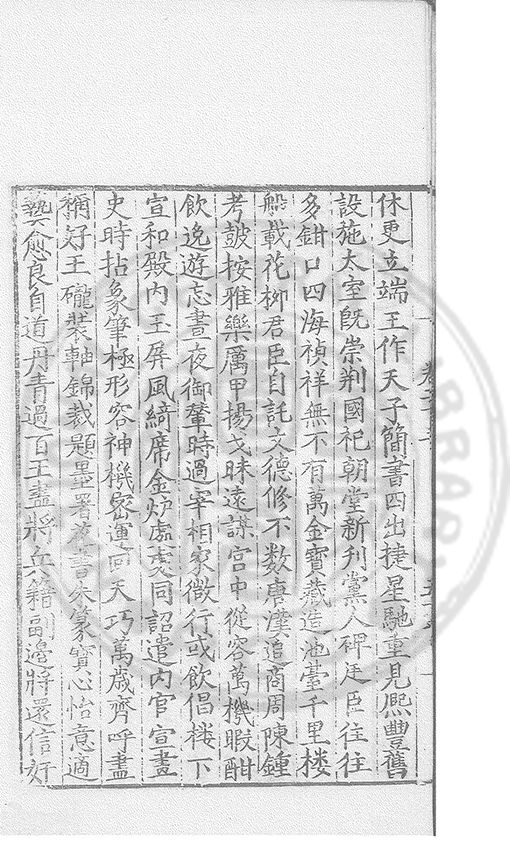 休更立端王作天子簡書四出捷星馳重見熈豐舊
設施太室旣崇荆國祀朝堂新刋黨人碑廷臣往往
多鉗口四海禎祥無不有萬金寶藏造池臺千里楼
船載花栁君臣自託文德修不数唐漢追商周陳鍾
考皷按雅樂厲甲揚戈昧逺謀宫中從容萬機暇酣
飲逸遊忘晝夜御輦時過宰相家微行或飲倡楼下
宣和殿内玉屏風綺席金炉處䖏同詔遣内官宣畫
史時拈彖筆極形容神機宻運回天巧萬歳齊呼盡
稱好玉礲裝軸錦裁題墨署 書朱篆寳心怡意適
藝愈良自道丹青過百王盡將兵籍副邉將還信奸